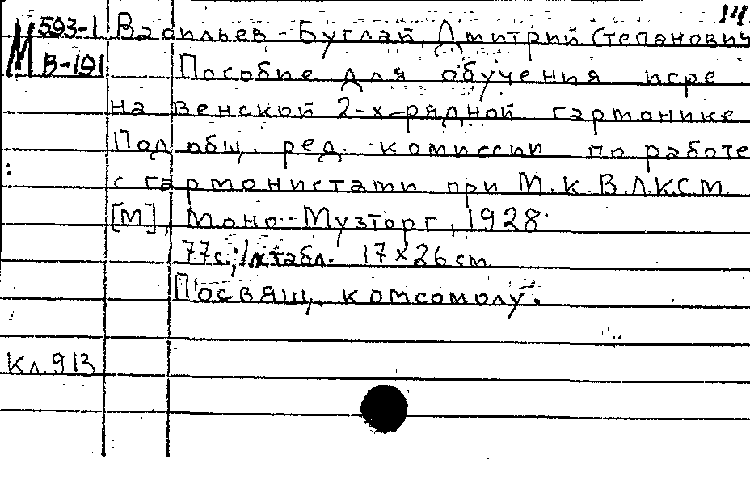 14
М 593-1 Васильев-Буглай, Дмитрий Степанович
В-191 Пособие для обучения игре
на венской 2-х-рядной гармонике
Под общ. ред. комиссии по работе
с гармонистами при М.К.ВЛКСМ
[М], Моно-Музторг, 1928.
77с.; 1л табл. 17×26 см
Посвящ. комсомолу.
Кл. 913